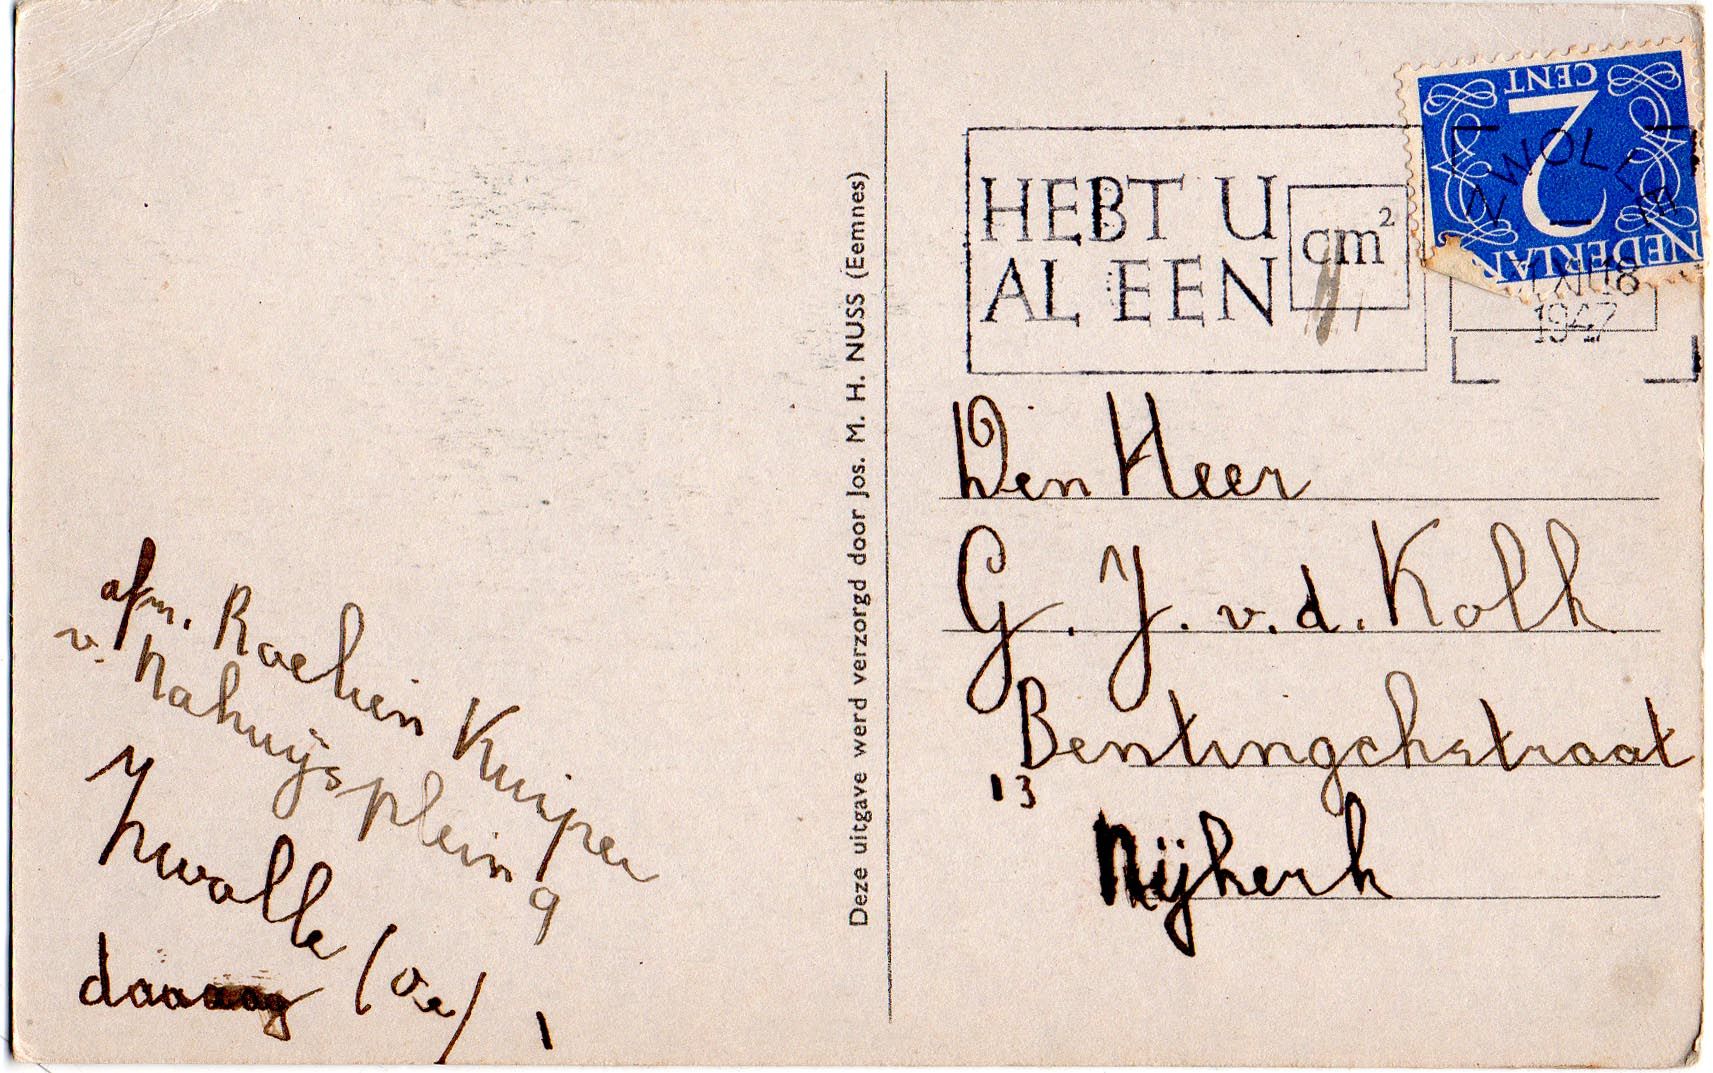 afm. Rachien Kuiper
v. Nahuijsplein 9
Zwolle (Ov.)
daaaag
Deze uitgave werd verzorgd door Jos. M. H. NUSS (Eemnes)
HEBT U
AL EEN
cm²
2
CENT
NEDERLAN
ZWOLLE
1947
Den Heer
G. J. v. d. Kolk
Bentingchstraat
13
Nijkerk